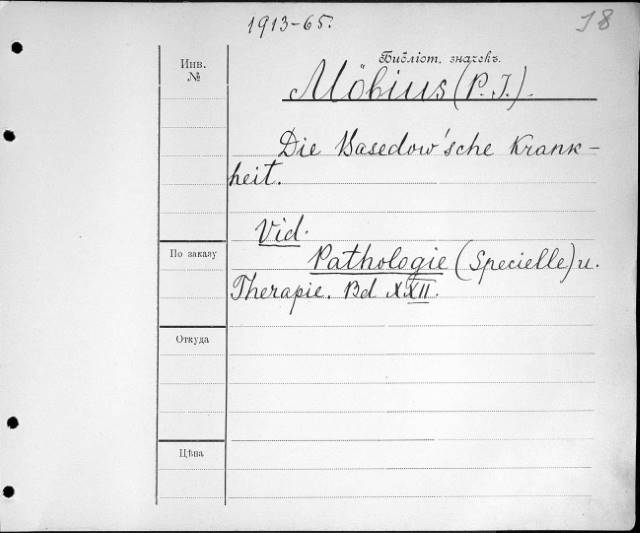 1913-65.
78
Инв.
№
Библіот. значекъ.
Möbius (P. J.).
Die Basedow'sche Krank-
heit.
Vid.
По заказу
Pathologie (Specielle) u.
Therapie. Bd XXII.
Откуда
Цѣна